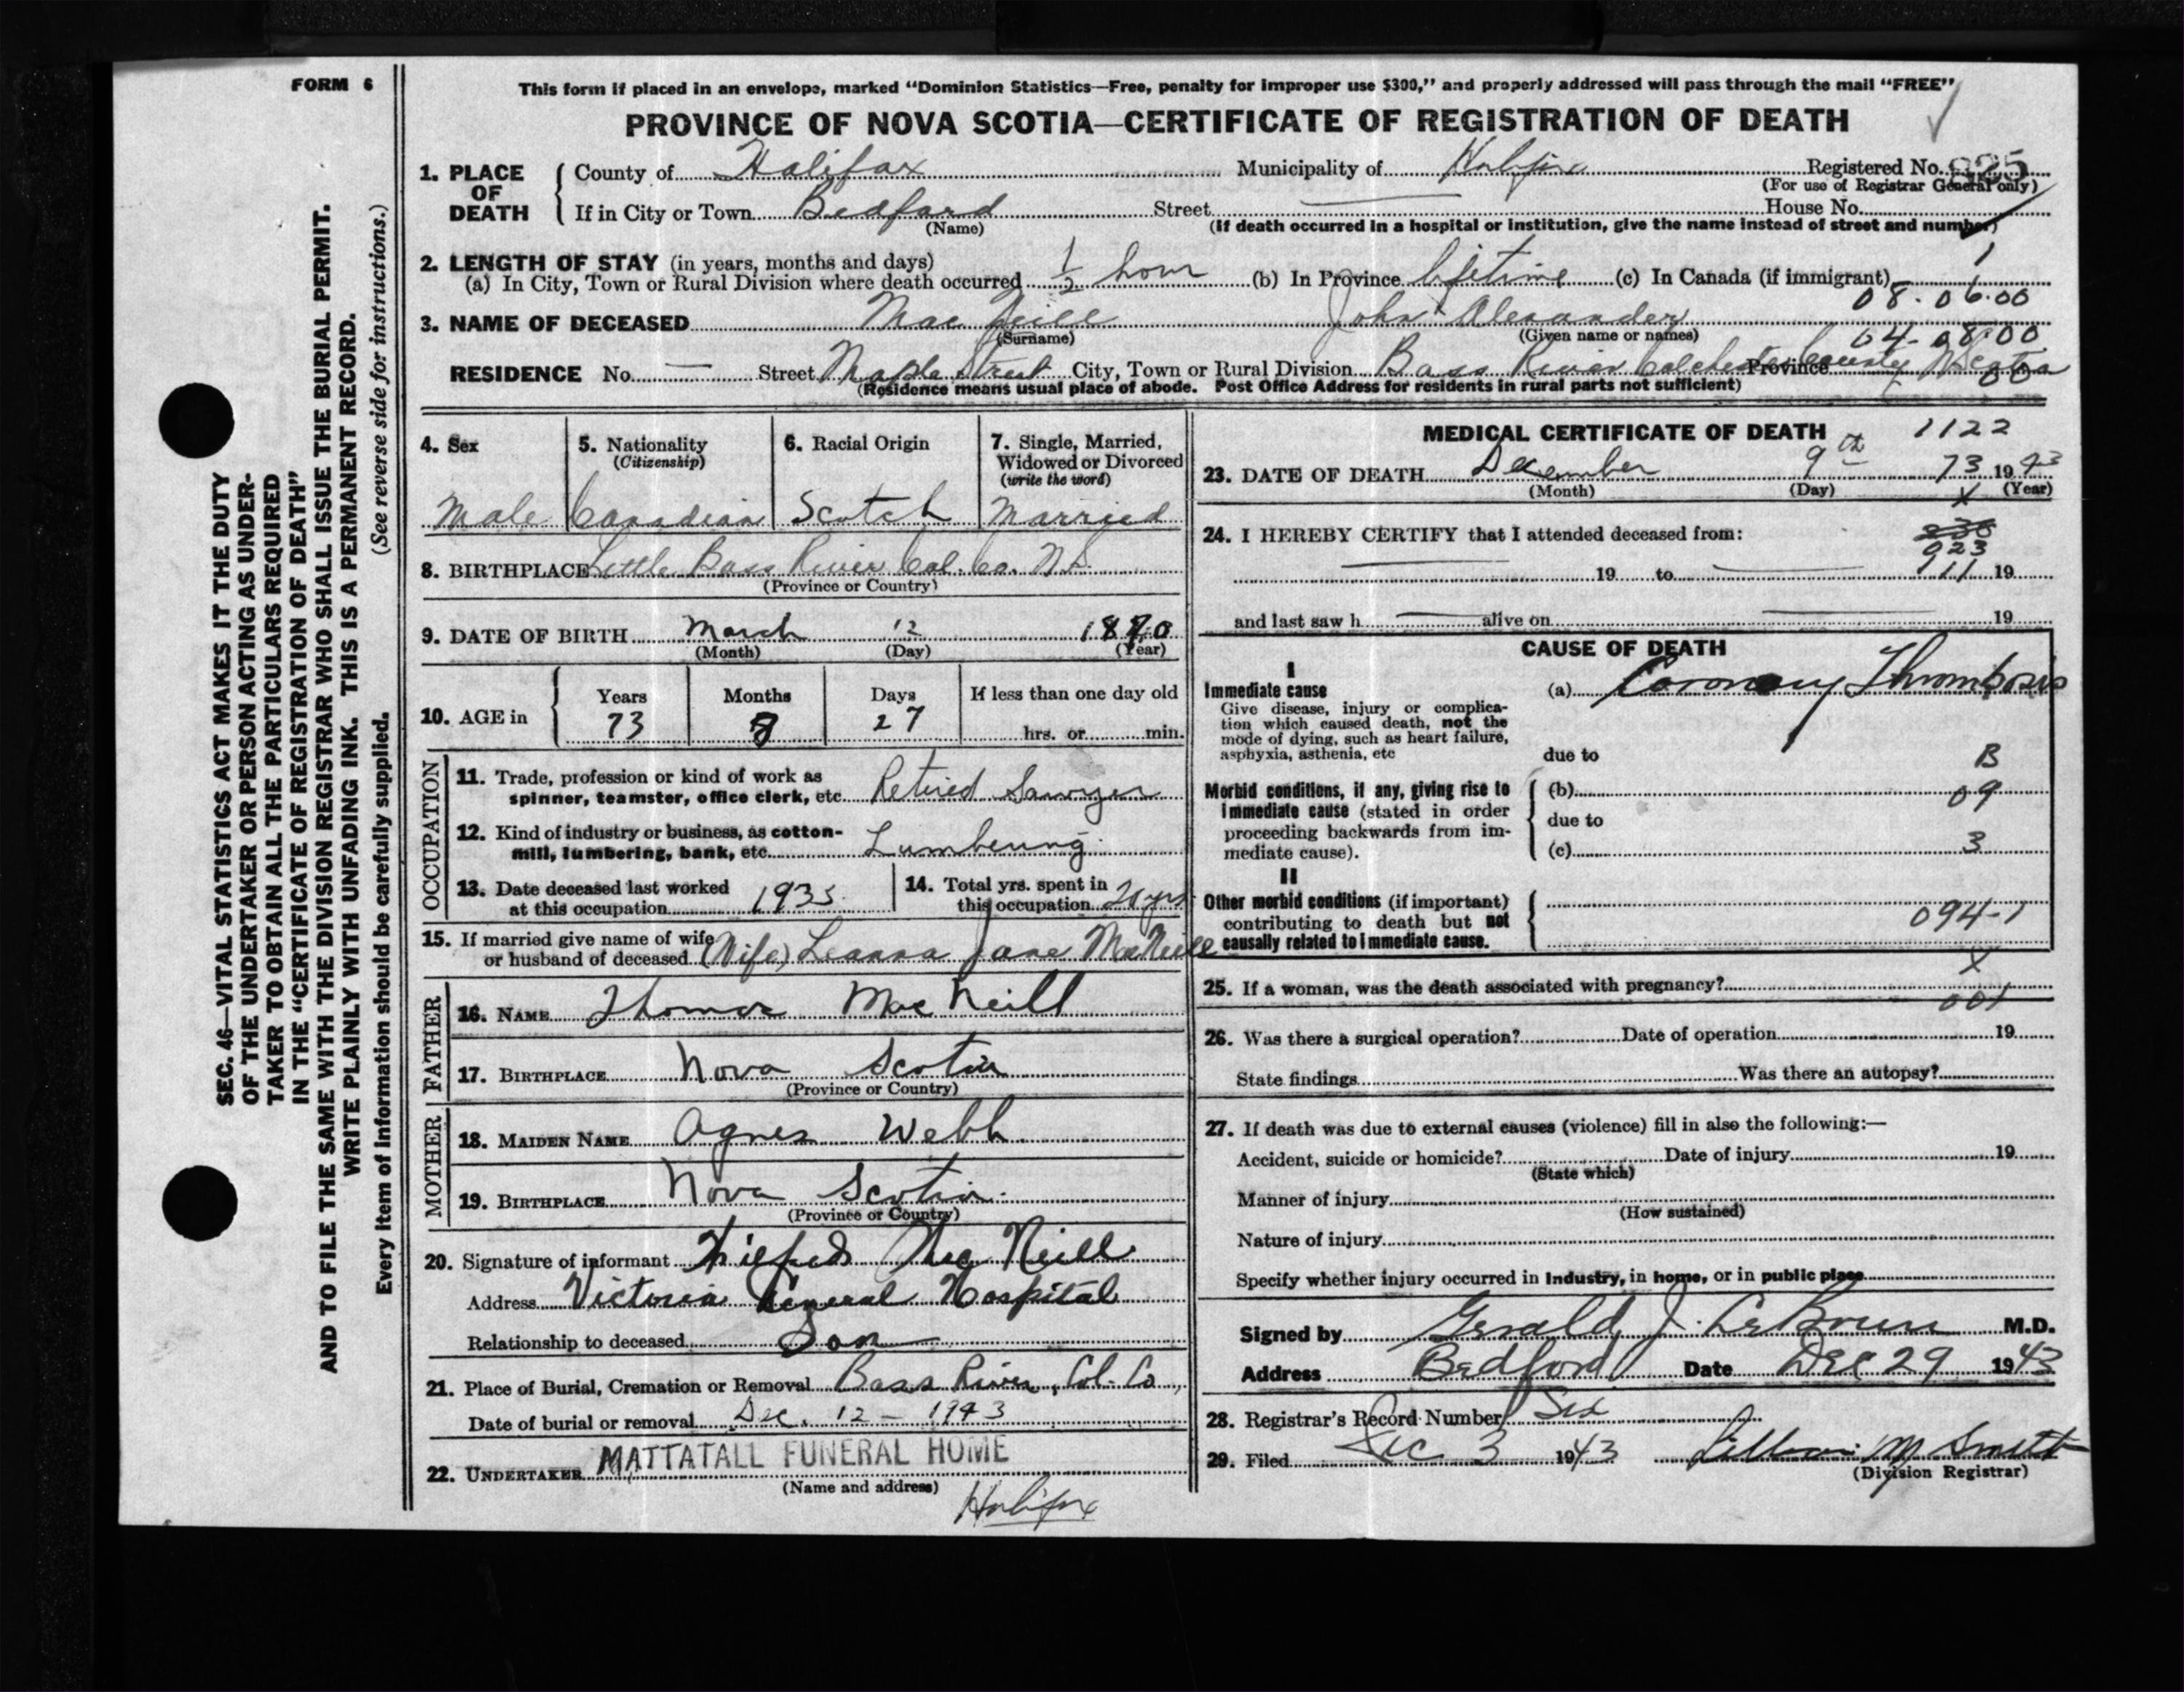 FORM 6
This form if placed in an envelope, marked "Dominion Statistics—Free, penalty for improper use $300," and properly addressed will pass through the mail "FREE"
PROVINCE OF NOVA SCOTIA—CERTIFICATE OF REGISTRATION OF DEATH
1. PLACE OF DEATH { County of Halifax Municipality of Halifax Registered No. 825
(For use of Registrar General only)
If in City or Town Bedford Street House No.
(Name) (If death occurred in a hospital or institution, give the name instead of street and number)
2. LENGTH OF STAY (in years, months and days)
(a) In City, Town or Rural Division where death occurred 1/2 hour (b) In Province lifetime (c) In Canada (if immigrant)
08-06-00
3. NAME OF DECEASED MacNeill John Alexander
(Surname) (Given name or names) 04-08-00
RESIDENCE No. — Street Maple Street City, Town or Rural Division Bass River Colchester County Province N Scotia
00
(Residence means usual place of abode. Post Office Address for residents in rural parts not sufficient)
SEC. 46—VITAL STATISTICS ACT MAKES IT THE DUTY
OF THE UNDERTAKER OR PERSON ACTING AS UNDER-
TAKER TO OBTAIN ALL THE PARTICULARS REQUIRED
IN THE "CERTIFICATE OF REGISTRATION OF DEATH"
AND TO FILE THE SAME WITH THE DIVISION REGISTRAR WHO SHALL ISSUE THE BURIAL PERMIT.
WRITE PLAINLY WITH UNFADING INK. THIS IS A PERMANENT RECORD.
(See reverse side for instructions.)
Every item of information should be carefully supplied.
4. Sex
Male
5. Nationality
(Citizenship)
Canadian
6. Racial Origin
Scotch
7. Single, Married,
Widowed or Divorced
(write the word)
Married
8. BIRTHPLACE Little Bass River Col. Co. N.S.
(Province or Country)
9. DATE OF BIRTH March 12 1870
(Month) (Day) (Year)
10. AGE in { Years Months Days If less than one day old
73 8 27 hrs. or min.
OCCUPATION
11. Trade, profession or kind of work as
spinner, teamster, office clerk, etc. Retired Sawyer
12. Kind of industry or business, as cotton-
mill, lumbering, bank, etc. Lumbering
13. Date deceased last worked
at this occupation 1935
14. Total yrs. spent in
this occupation 20 yrs
15. If married give name of wife
or husband of deceased (Wife) Leanna Jane MacNeill
FATHER
16. NAME Thomas MacNeill
17. BIRTHPLACE Nova Scotia
(Province or Country)
MOTHER
18. MAIDEN NAME Agnes Webb
19. BIRTHPLACE Nova Scotia
(Province or Country)
20. Signature of informant Wilfred MacNeill
Address Victoria General Hospital
Relationship to deceased Son
21. Place of Burial, Cremation or Removal Bass River, Col. Co.
Date of burial or removal Dec. 12 - 1943
22. UNDERTAKER MATTATALL FUNERAL HOME
(Name and address) Halifax
MEDICAL CERTIFICATE OF DEATH 1122
23. DATE OF DEATH December 9th 73 1943
(Month) (Day) X (Year)
24. I HEREBY CERTIFY that I attended deceased from:
923
19 to 111 19
and last saw h alive on 19
CAUSE OF DEATH
I
Immediate cause
Give disease, injury or complica-
tion which caused death, not the
mode of dying, such as heart failure,
asphyxia, asthenia, etc
(a) Coronary Thrombosis
due to B
Morbid conditions, if any, giving rise to
immediate cause (stated in order
proceeding backwards from im-
mediate cause).
(b) 09
due to
(c) 3
II
Other morbid conditions (if important)
contributing to death but not
causally related to immediate cause.
094-1
X
25. If a woman, was the death associated with pregnancy?
001
26. Was there a surgical operation? Date of operation 19
State findings Was there an autopsy?
27. If death was due to external causes (violence) fill in also the following:—
Accident, suicide or homicide? Date of injury 19
(State which)
Manner of injury
(How sustained)
Nature of injury
Specify whether injury occurred in industry, in home, or in public place
Signed by Gerald J. LeBrun M.D.
Address Bedford Date Dec 29 1943
28. Registrar's Record Number Six
29. Filed Dec 3 1943 Lillian M Smith
(Division Registrar)